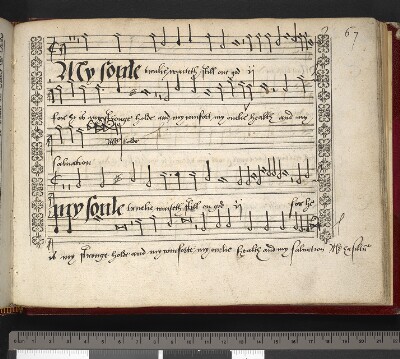 67
My soule trewlie waiteth still on god ij
for he is my stronge holde and my comfort my onlie health and my
salvation
My soule trewlie waiteth still on god ij for he
is my stronge holde and my comforte my onlie health and my salvation